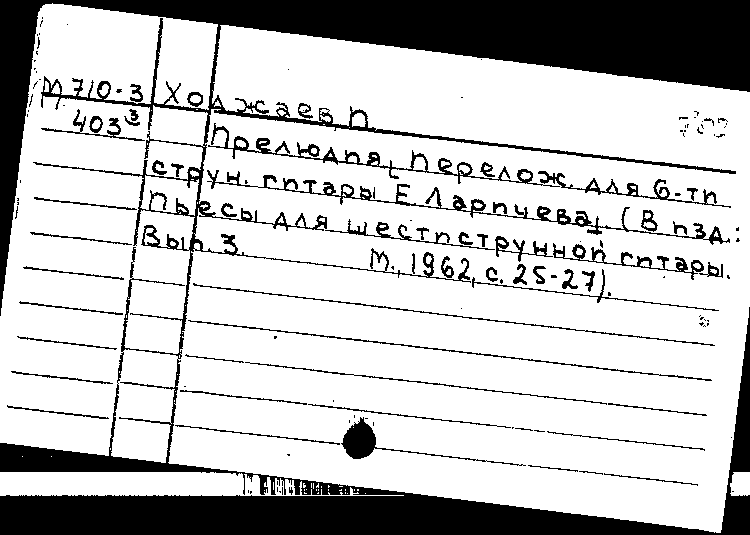 М 710-3 Ходжаев, И.
403³
Прелюдия [, Перелож. для 6-ти
струн. гитары Е Ларичева]. (В изд.:
Пьесы для шестиструнной гитары.
Вып. 3. М., 1962, с. 25-27).